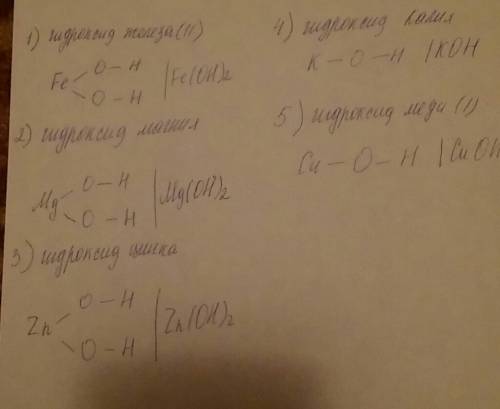 1) гидроксид железа (II)
Fe O - H | Fe(OH)2
O - H
2) гидроксид магния
Mg O - H | Mg(OH)2
O - H
3) гидроксид цинка
Zn O - H | Zn(OH)2
O - H
4) гидроксид калия
K - O - H | KOH
5) гидроксид меди (I)
Cu - O - H | CuOH